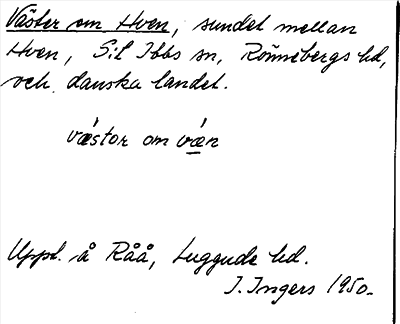 Väster om Hven, sundet mellan
Hven, S:t Ibbs sn, Rönnebergs hd,
och danska landet.
vǽstor om vǽn
Uppt. å Råå, Luggude hd.
I. Ingers 1950.